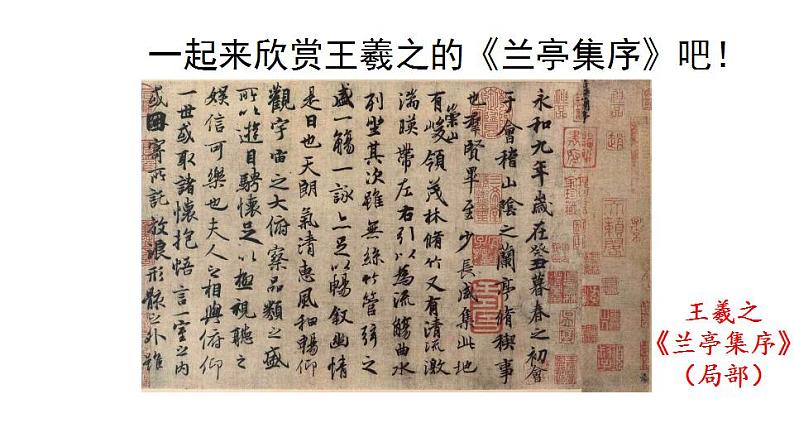 一起来欣赏王羲之的《兰亭集序》吧！
永和九年歲在癸丑暮春之初會
于會稽山陰之蘭亭脩稧事
也羣賢畢至少長咸集此地
有崇山峻領茂林脩竹又有清流激
湍暎帶左右引以為流觴曲水
列坐其次雖無絲竹管弦之
盛一觴一詠亦足以暢敘幽情
是日也天朗氣清惠風和暢仰
觀宇宙之大俯察品類之盛
所以遊目騁懷足以極視聽之
娛信可樂也夫人之相與俯仰
一世或取諸懷抱悟言一室之內
或因寄所託放浪形骸之外雖
王羲之
《兰亭集序》
（局部）